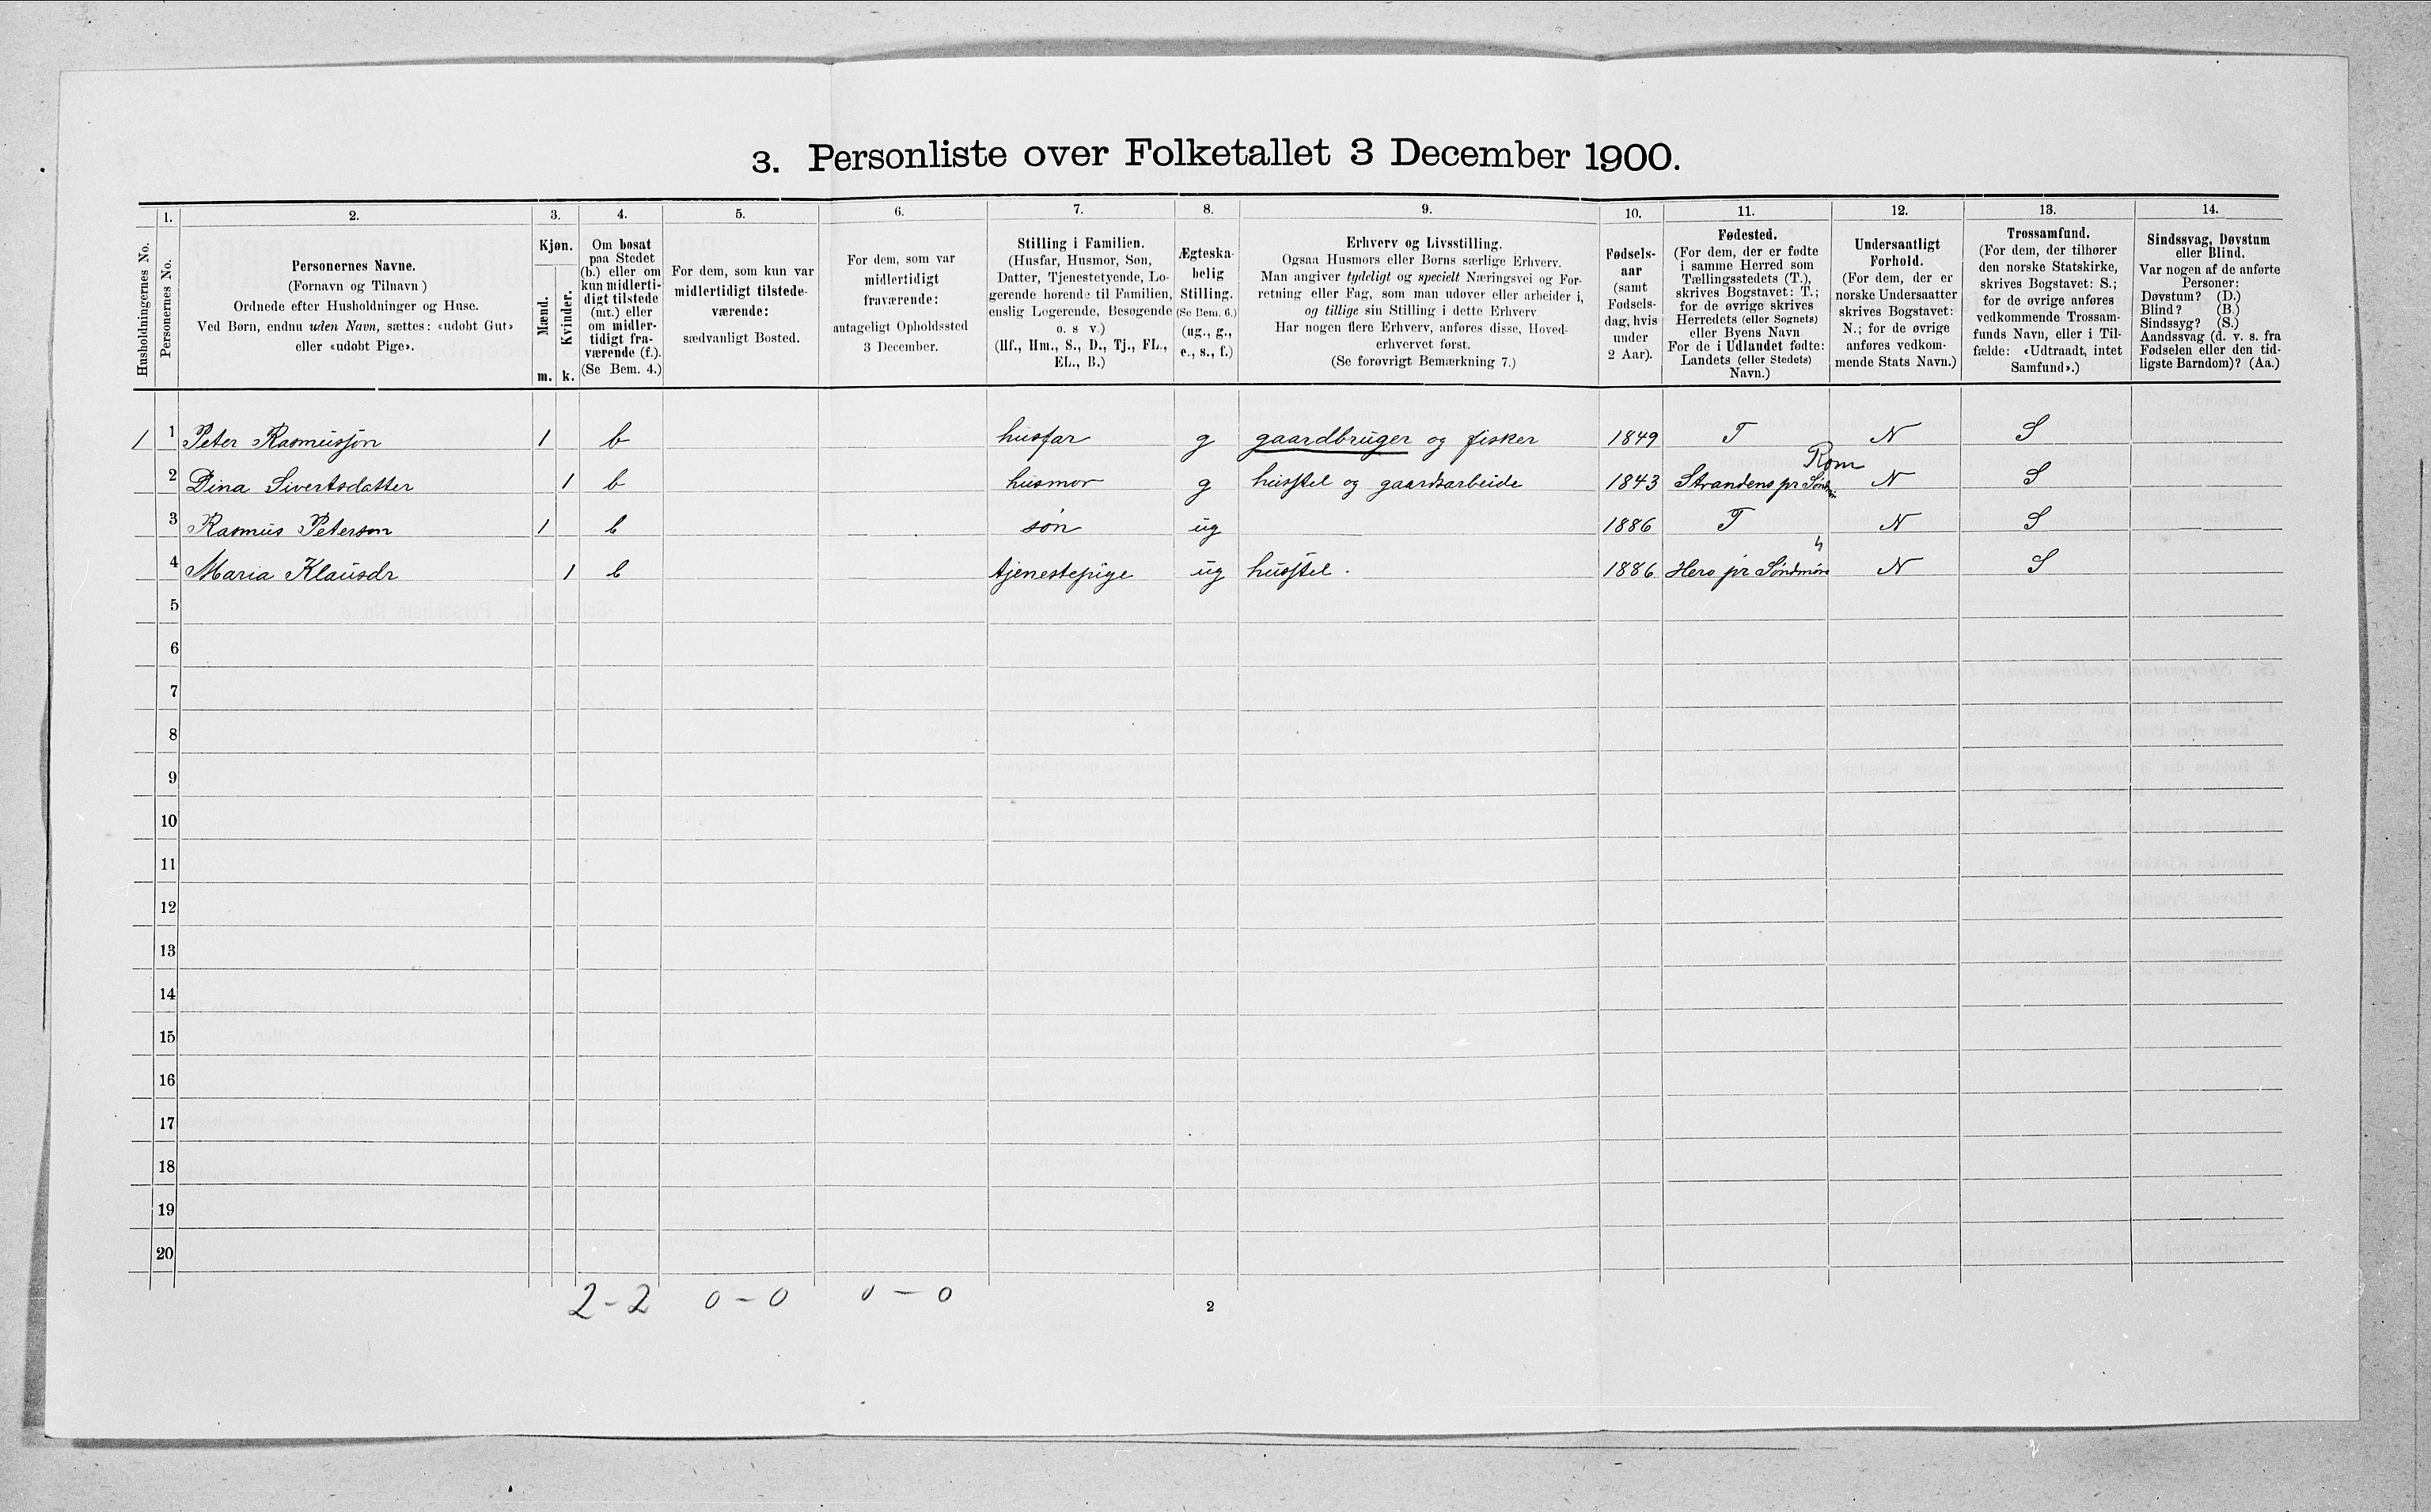 3. Personliste over Folketallet 3 December 1900.
1. 2. 3. 4. 5. 6. 7. 8. 9. 10. 11. 12. 13. 14.
Husholdningernes No.
Personernes No.
Personernes Navne.
(Fornavn og Tilnavn )
Ordnede efter Husholdninger og Huse.
Ved Børn, endnu uden Navn, sættes: «udøbt Gut»
eller «udøbt Pige».
Kjøn.
Mænd.
Kvinder.
m. k.
Om bosat
paa Stedet
(b.) eller om
kun midlerti-
digt tilstede
(mt.) eller
om midler-
tidigt fra-
værende (f.).
(Se Bem. 4.)
For dem, som kun var
midlertidigt tilstede-
værende:
sædvanligt Bosted.
For dem, som var
midlertidigt
fraværende:
antageligt Opholdssted
3 December.
Stilling i Familien.
(Husfar, Husmor, Søn,
Datter, Tjenestetyende, Lo-
gerende hørende til Familien,
enslig Logerende, Besøgende
o. s v.)
(Hf., Hm., S., D., Tj., FL.,
EL., B.)
Ægteska-
belig
Stilling.
(Se Bem. 6.)
(ug., g.,
e., s., f.)
Erhverv og Livsstilling.
Ogsaa Husmors eller Børns særlige Erhverv.
Man angiver tydeligt og specielt Næringsvei og For-
retning eller Fag, som man udøver eller arbeider i,
og tillige sin Stilling i dette Erhverv
Har nogen flere Erhverv, anføres disse, Hoved-
erhvervet først.
(Se forøvrigt Bemærkning 7.)
Fødsels-
aar
(samt
Fødsels-
dag, hvis
under
2 Aar).
Fødested.
(For dem, der er fødte
i samme Herred som
Tællingsstedets (T.),
skrives Bogstavet: T.;
for de øvrige skrives
Herredets (eller Sognets)
eller Byens Navn
For de i Udlandet fødte:
Landets (eller Stedets)
Navn.)
Undersaatligt
Forhold.
(For dem, der er
norske Undersaatter
skrives Bogstavet:
N.; for de øvrige
anføres vedkom-
mende Stats Navn.)
Trossamfund.
(For dem, der tilhører
den norske Statskirke,
skrives Bogstavet: S.;
for de øvrige anføres
vedkommende Trossam-
funds Navn, eller i Til-
fælde: «Udtraadt, intet
Samfund».)
Sindssvag, Døvstum
eller Blind.
Var nogen af de anførte
Personer:
Døvstum? (D.)
Blind? (B.)
Sindssyg? (S.)
Aandssvag (d. v. s. fra
Fødselen eller den tid-
ligste Barndom)? (Aa.)
1 1 Peter Rasmussøn 1 b husfar g gaardbruger og fisker 1849 T N S
Rom
2 Dina Sivertsdatter 1 b husmor g husstel og gaardsarbeide 1843 Strandens pr N S
3 Rasmus Peterson 1 b søn ug 1886 T N S
4 Maria Klausdr 1 b tjenestepige ug husstel. 1886 Hero pr Søndmøre N S
5
6
7
8
9
10
11
12
13
14
15
16
17
18
19
20
2 - 2 0 - 0 0 - 0
2